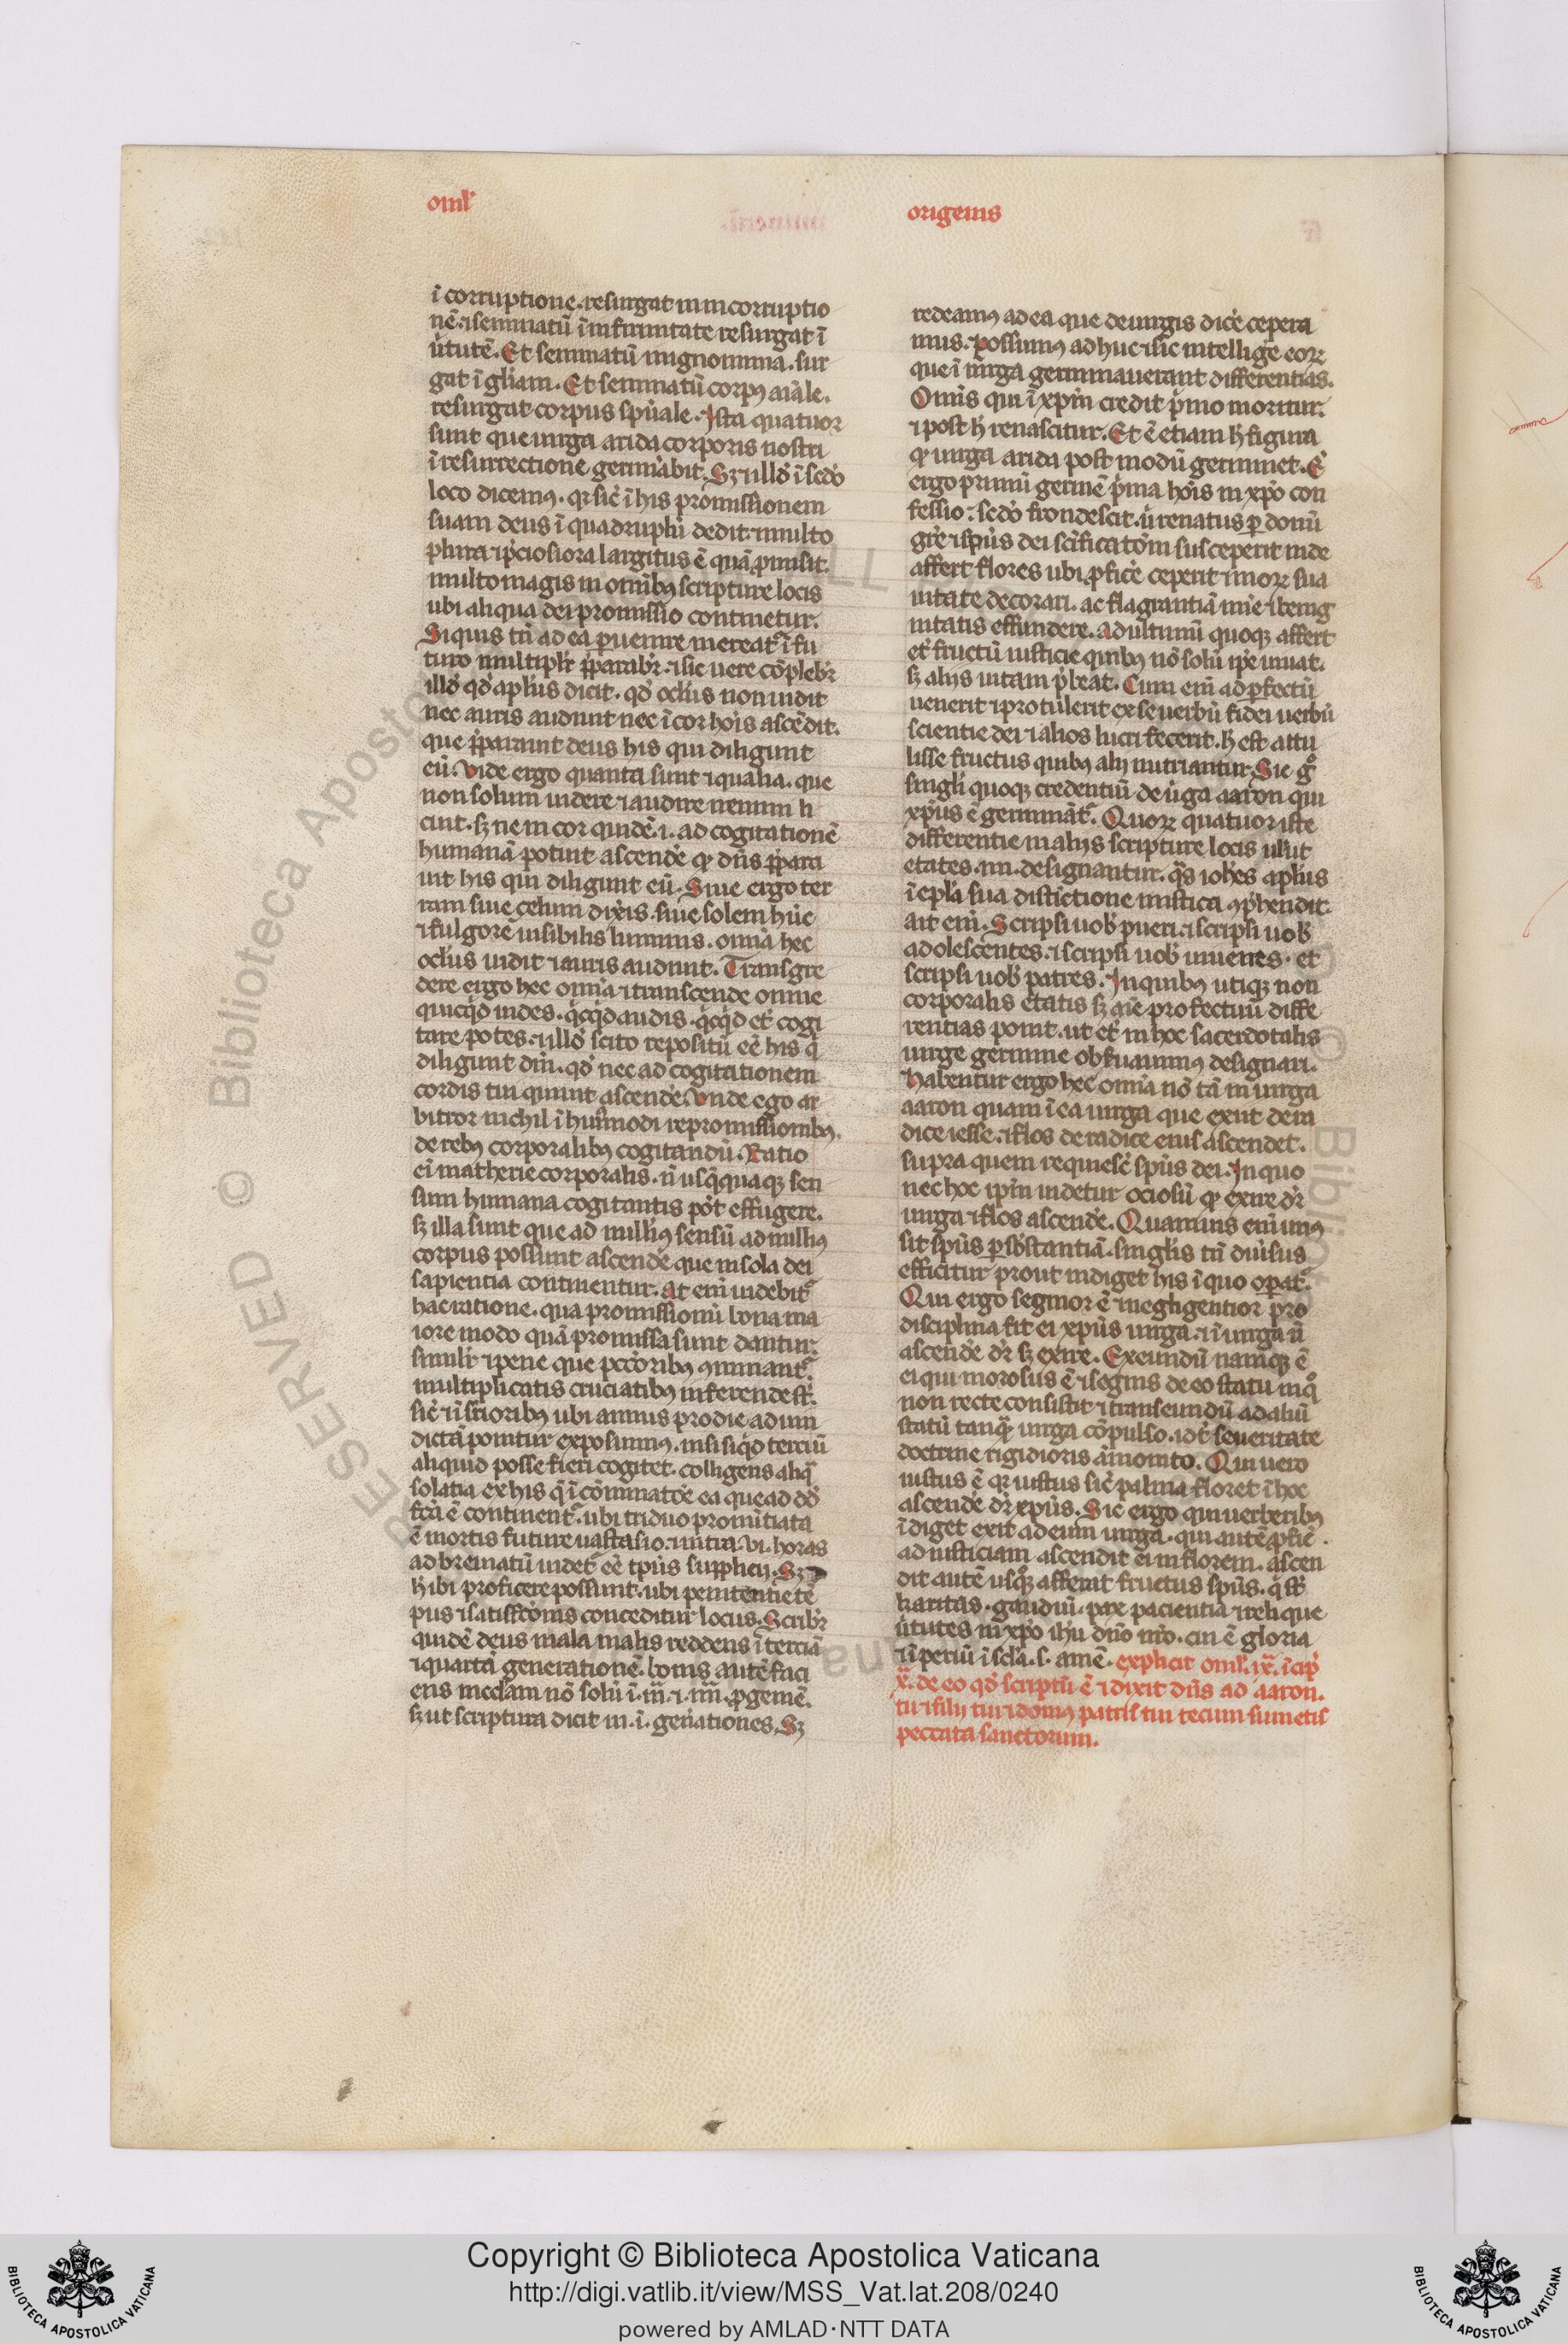 oml'
origenis
ī corruptione. resurgat in incorruptio
nē. ⁊ seminatū ī infirmitate resurgat ī
ủtutē. Et seminatū in ignominia. sur
gat ī gl'iam. Et seminatū corpꝰ aīale.
resurgat corpus sp̄uale. Ista quatuor
sunt que uirga arida corporis nostri
ī resurrectione germīabit. Sꝫ ⁊ illd' ī scd'o
loco dicemꝰ. qꝛ sic̄ ī his promissionem
suam deus ī quadruplū dedit. ⁊ multo
plura ⁊ p̄ciosiora largitus ē quā ꝓmisit.
multo magis in omībꝫ scripture locis
ubi aliqua dei promissio continetur.
Si quis tn̄ ad ea ꝑuenire mereat᷑ ī fu
turo multiplr̄ p̄parabr̄. ⁊ sic uere cōplebr̄
illd' qd' apl'us dicit. qd' ocl'us non uidit
nec auris audiuit nec ī cor hoīs ascēdit.
que p̄parauit deus his qui diligunt
eū. Vide ergo quanta sunt ⁊ qualia. que
non solum uidere ⁊ audire nemini li
cuit. sꝫ ne in cor quidē. i. ad cogitationē
humanā potuit ascend'e qd' dn̄s p̄para
uit his qui diligunt eū. Siue ergo ter
ram siue celum dix'is. siue solem hūc
⁊ fulgorē uisibilis luminis. omīa hec
ocl'us uidit ⁊ auris audiuit. Transgre
dere ergo hec omīa ⁊ transcende omne
quicqd' uides. qicqd' audis. qicqd' et̄ cogi
tare potes. ⁊ illd' scito repositū eē his q'
diligunt dm̄. qd' nec ad cogitationem
cordis tui quiuit ascend'e. Vnde ego ar
bitror nichil ī hui᷑modi repromissionibꝫ.
de rebꝫ corporalibꝫ cogitandū. Ratio
ei' matherie corporalis. n̄ usq̄quaqꝫ sen
sum humana cogitantis pōt effugere.
sꝫ illa sunt que ad nulliꝰ sensū ad nulliꝰ
corpus possunt ascend'e que in sola dei
sapientia continentur. At em̄ uidebit᷑
hac ratione. qua promissionū bona ma
iore modo quā promissa sunt dantur.
similr̄ ⁊ pene que pccōribꝫ ꝯminant᷑.
multiplicatis cruciatibꝫ inferende st̄.
sic̄ ⁊ ī sup̄ioribꝫ ubi annus pro die ad uin
dictā ponitur exposuimꝰ. nisi siqd' terciū
aliquid posse fieri cogitet. colligens aliq̄
solatia ex his q̄ ī cōminatōe ea que ad dd'
fc̄a ē continent᷑. ubi triduo pronūtiata
ē mortis future uastasio. ⁊ intra. vi. horas
ad breuiatū uidet᷑ eē tp̄us supplicij. Sꝫ
h' ibi proficere possunt. ubi penitentie tē
pus ⁊ satisfc̄onis conceditur locus. Scribr̄
quidē deus mala malis reddens ī terciā
⁊ quartā generationē. bonis autē faci
ens mcd'iam nō solū ī. iii. ⁊. iiii. ꝓgeniē.
sꝫ ut scriptura dicit in. ī. geñationes. Sꝫ
redeamꝰ ad ea que de uirgis dic'e cepera
mus. Possumꝰ adhuc ⁊ sic intellig'e eoꝝ
que ī uirga germinauerant differentias.
Omīs qui ī xp̄m credit p'mo moritur.
⁊ post h' renascitur. Et ē etiam h' figura
qd' uirga arida post modū germinet. E'
ergo primū germē p'ma hoīs in xp̄o con
fessio. scd'o frondescit. ủ renatus ꝑ donū
gr̄e ⁊ sp̄us dei scīficatōem susceperit inde
affert flores ubi ꝓfic'e ceperit ⁊ moꝝ sua
uitate decorari. ac flagrantiā mīe ⁊ benig
nitatis effundere. Ad ultimū quoqꝫ affert
et̄ fructū iusticie quibꝫ nō solū ip̄e uiuat.
sꝫ alijs uitam p̄beat. Cum em̄ ad ꝑfectū
uenerit ⁊ protulerit ex se uerbū fidei uerbū
scientie dei ⁊ alios lucri fecerit. h' est attu
lisse fructus quibꝫ alij nutriantur. Sic g°
singl'i quoqꝫ credentiū de ủga aaron qui
xp̄us ē germinātᷓ. Quoꝝ quatuor iste
differentie in alijs scripture locis uel'ut
etates. iiii. designantur. q̄s ioh'es apl'us
ī epl'a sua distīctione mistica ꝯp̄hendit.
ait em̄. Scripsi uob' pueri. ⁊ scripsi uob'
adolescentes. ⁊ scripsi uob' iuuenes. et
scripsi uob' patres. In quibꝫ utiqꝫ non
corporalis etatis sꝫ aīe profectuū diffe
rentias ponit. ut et̄ in hoc sacerdotalis
uirge germine obs'uauimꝰ designari.
Habentur ergo hec omīa nō tā in uirga
aaron quam ī ea uirga que exiit de ra
dice iesse. ⁊ flos de radice eius ascendet.
supra quem requiesc' sp̄us dei. In quo
nec hoc ip̄m uidetur ociosū qd' exire dr̄
uirga ⁊ flos ascend'e. Quamuis em̄ unꝰ
sit sp̄us ꝑ sb'stantiā. singl'is tn̄ diuisus
efficitur prout indiget his ī quo oꝑat᷑.
Qui ergo segnior ē ⁊ negligentior pro
disciplina fit ei xp̄us uirga. ⁊ ī uirga n̄
ascend'e dr̄ sꝫ exire. Exeundū namqꝫ ē
ei qui morosus ē ⁊ segnis de eo statu in q°
non recte consistit ⁊ transeundū ad aliū
statū tanq̄ uirga cōpulso. id'ē seueritate
doctrine rigidioris āmonito. Qui uero
iustus ē qꝛ iustus sic̄ palma floret ī hoc
ascend'e dr̄ xp̄us. Sic ergo qui uerberibꝫ
īdiget exit ad eum uirga. qui autē ꝓfic̄.
ad iusticiam ascendit ei in florem. ascen
dit autē usq° afferat fructus sp̄us. q' st̄
karitas. gaudiū. pax pacientia ⁊ reli que
ủtutes in xp̄o ih'u dn̄o nr̄o. cui ē gloria
⁊ īperiū ī scl'a. s. amē. explicit oml'. ix. īcip'
x. de eo qd' scriptū ē ⁊ dixit dn̄s ad aaron.
tu ⁊ filij tui ⁊ domꝰ patris tui tecum sumetis
peccata sanctorum.
RESERVED © Biblioteca Aposto
ALL
© Bibliot
Copyright © Biblioteca Apostolica Vaticana
http://digi.vatlib.it/view/MSS_Vat.lat.208/0240
powered by AMLAD·NTT DATA
BIBLIOTECA APOSTOLICA VATICANA
BIBLIOTECA APOSTOLICA VATICANA